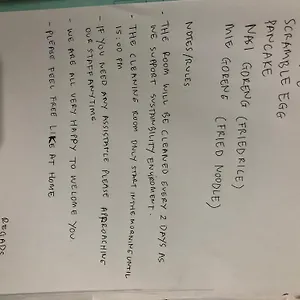 SCRAMBLE EGG
PANCAKE
NASI GORENG (FRIED RICE)
MIE GORENG (FRIED NOODLE)
NOTES/RULES
- THE ROOM WILL BE CLEANED EVERY 2 DAYS AS
WE SUPPORT SUSTAINBILITY ENVIROMENT.
- THE CLEANING ROOM ONLY START IN THE MORNING UNTIL
15:00 PM
- IF YOU NEED ANY ASSISTANCE PLEASE APPROACHING
OUR STAFF ANY TIME
- WE ARE ALL VERY HAPPY TO WELCOME YOU
- PLEASE FEEL FREE LIKE AT HOME
REGADS